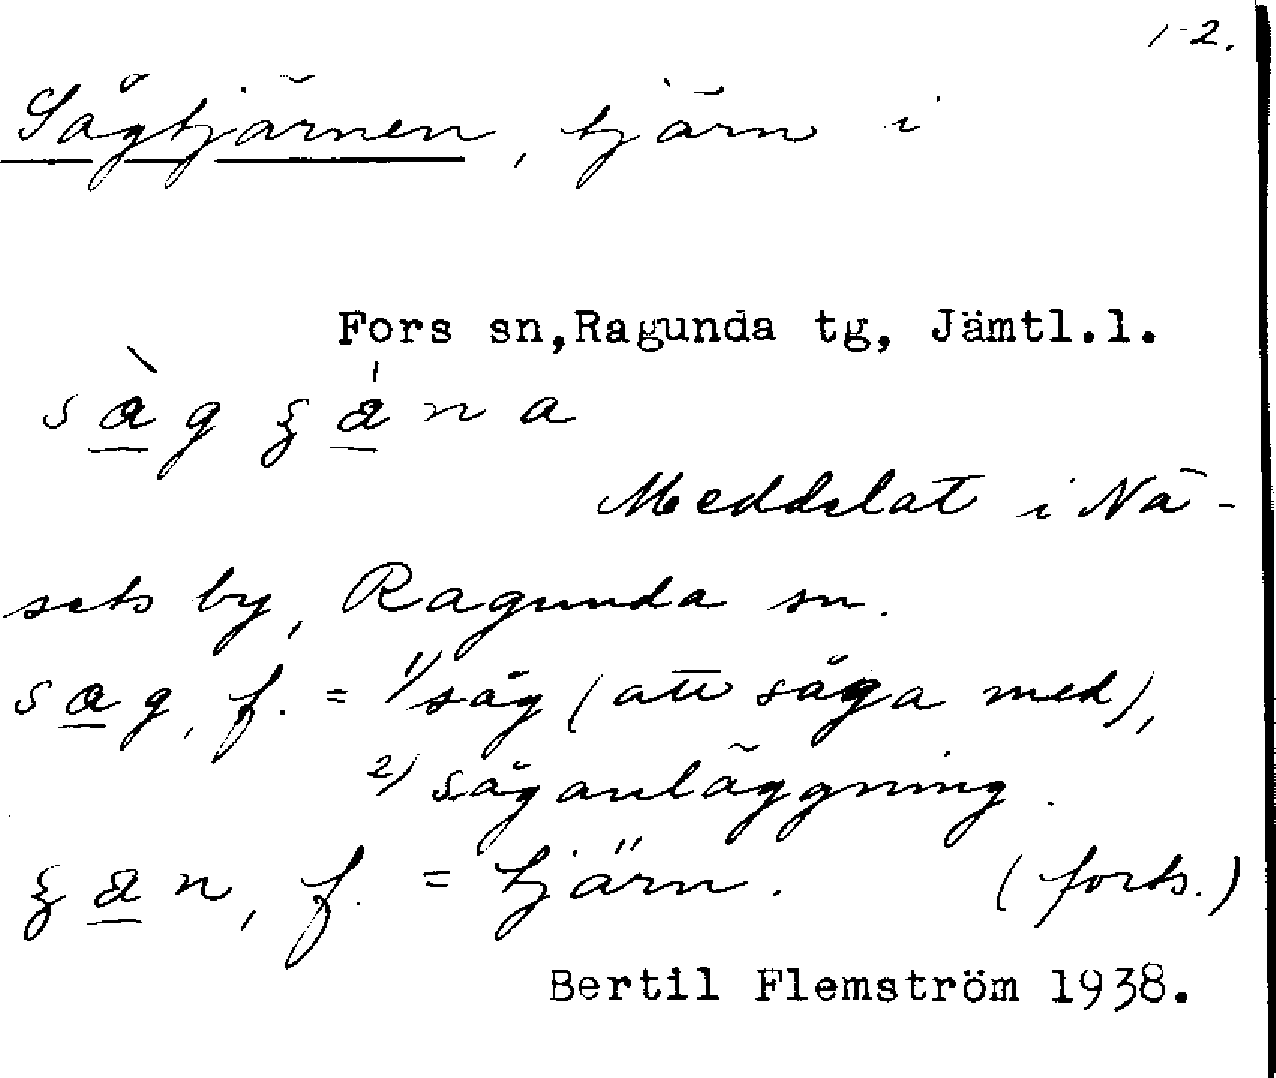 1-2.
Sågtjärnen, tjärn i
Fors sn,Ragunda tg, Jämtl.l.
sàg ʒána
Meddelat i Nä-
sets by, Ragunda sn.
sag, f. = 1) såg (att såga med),
2) såganläggning.
ʒan, f. = tjärn. (forts.)
Bertil Flemström 1938.